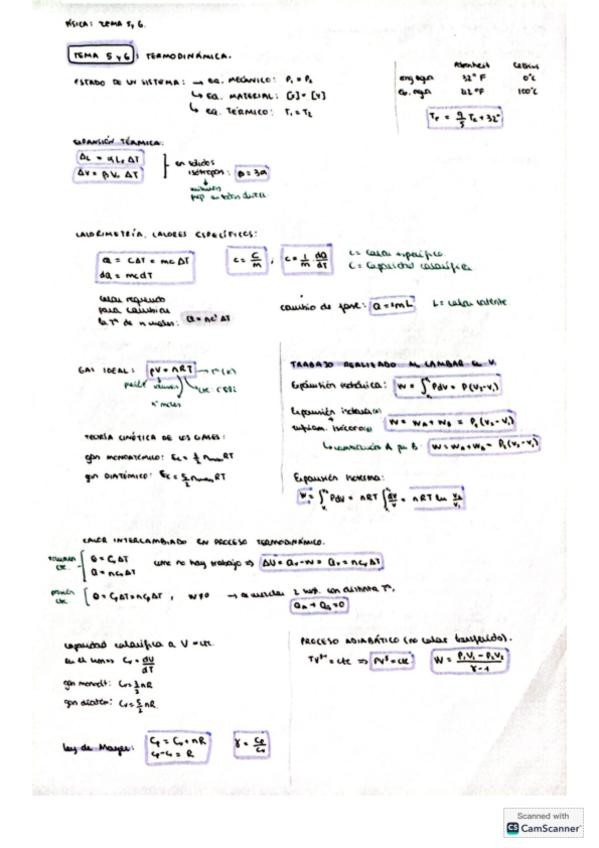 FÍSICA: TEMA 5 y 6.
TEMA 5 y 6: TERMODINÁMICA.
ESTADO DE UN SISTEMA: → eq. MECÁNICO: P₁ = P₂
↳ eq. MATERIAL:
↳ eq. TÉRMICO: T₁ = T₂
Fahrenheit Celsius
32°F 0°C
100°C
T_F = 9/5 T_C + 32°
EXPANSIÓN TÉRMICA:
ΔL = αL₀ΔT
ΔV = βV₀ΔT
en sólidos
isótropos: β = 3α
CALORIMETRÍA, CALORES ESPECÍFICOS:
Q = CΔT = mcΔT
dQ = mcdT
c = C/m , c = 1/m dQ/dT
c = calor específico
C = Capacidad calorífica
calor requerido
para cambiar
la Tª de n moles: Q = nc'ΔT
cambio de fase: Q = ±mL
L = calor latente
GAS IDEAL: pV = nRT → Tª (K)
presión volumen
nº moles
TEORÍA CINÉTICA DE LOS GASES:
gas MONOATÓMICO:
gas DIATÓMICO:
TRABAJO REALIZADO AL CAMBIAR EL V.
Expansión isobárica: W = ∫ PdV = P(V₂-V₁)
Expansión isobárica
+
isócoro: W = W_A + W_B = P₁(V₂-V₁)
W = W_A + W_B = P₂(V₂-V₁)
Expansión isoterma:
W = ∫ PdV = nRT ∫ dV/V = nRT ln V₂/V₁
CALOR INTERCAMBIADO EN PROCESO TERMODINÁMICO.
volumen
cte.
Q = C_VΔT
Q = nc_VΔT
como no hay trabajo ⇒ ΔU = Q_V - W = Q_V = nc_VΔT
presión
cte.
Q = C_PΔT = nc_PΔT , W ≠ 0 → 2 sust. con distinta Tª,
Q_A + Q_B = 0
capacidad calorífica a V = cte.
C_V = dU/dT
gas monoató: C_V = 3/2 nR
gas diatóm: C_V = 5/2 nR
Ley de Mayer: C_P = C_V + nR
c_P - c_V = R
γ = C_P/C_V
PROCESO ADIABÁTICO (no calor transferido).
TV^γ⁻¹ = cte ⇒ PV^γ = cte
W = P₁V₁ - P₂V₂/γ - 1
Scanned with
CS CamScanner